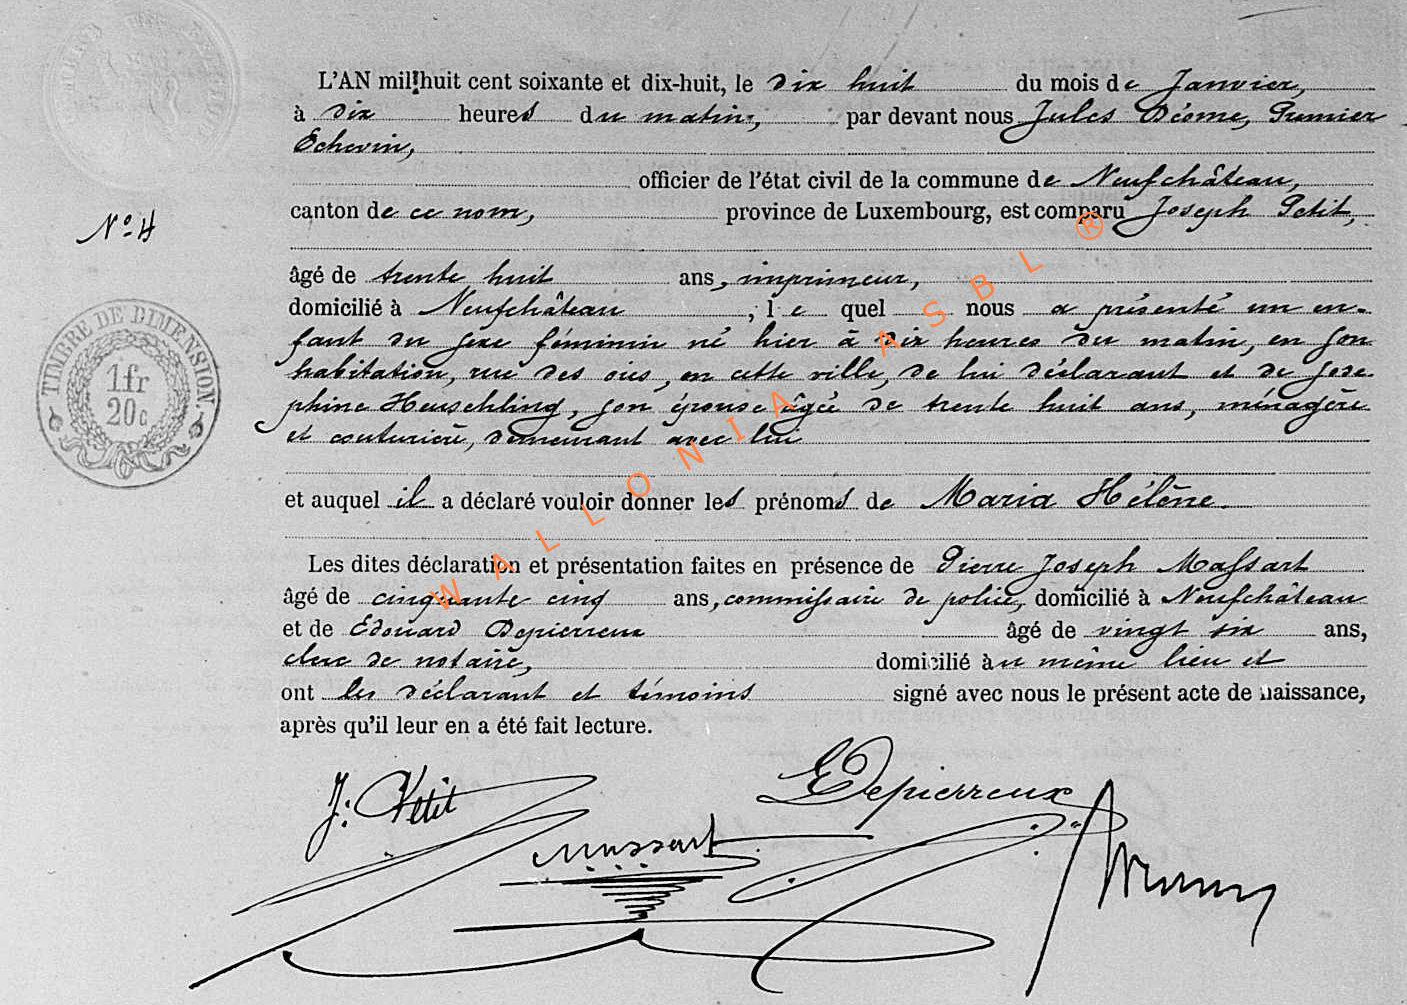 L'AN mil huit cent soixante et dix-huit, le dix huit du mois de Janvier,
à dix heures du matin, par devant nous Jules Déome, Premier
Echevin,
officier de l'état civil de la commune de Neufchâteau,
N° 4
canton de ce nom, province de Luxembourg, est comparu Joseph Petit,
âgé de trente huit ans, imprimeur,
domicilié à Neufchâteau, le quel nous a présenté un en-
fant du sexe féminin né hier à dix heures du matin, en son
habitation, rue des oies, en cette ville, de lui déclarant et de José-
phine Heuschling, son épouse âgée de trente huit ans, ménagère
et couturière, demeurant avec lui
TIMBRE DE DIMENSION
1fr
20c
et auquel il a déclaré vouloir donner les prénoms de Maria Hélène.
Les dites déclaration et présentation faites en présence de Pierre Joseph Massart
âgé de cinquante cinq ans, commissaire de police, domicilié à Neufchâteau
et de Edouard Depierreux âgé de vingt six ans,
clerc de notaire, domicilié au même lieu et
ont les déclarant et témoins signé avec nous le présent acte de naissance,
après qu'il leur en a été fait lecture.
J. Petit
EDepierreux
Massart
WALLONIA ASBL ®